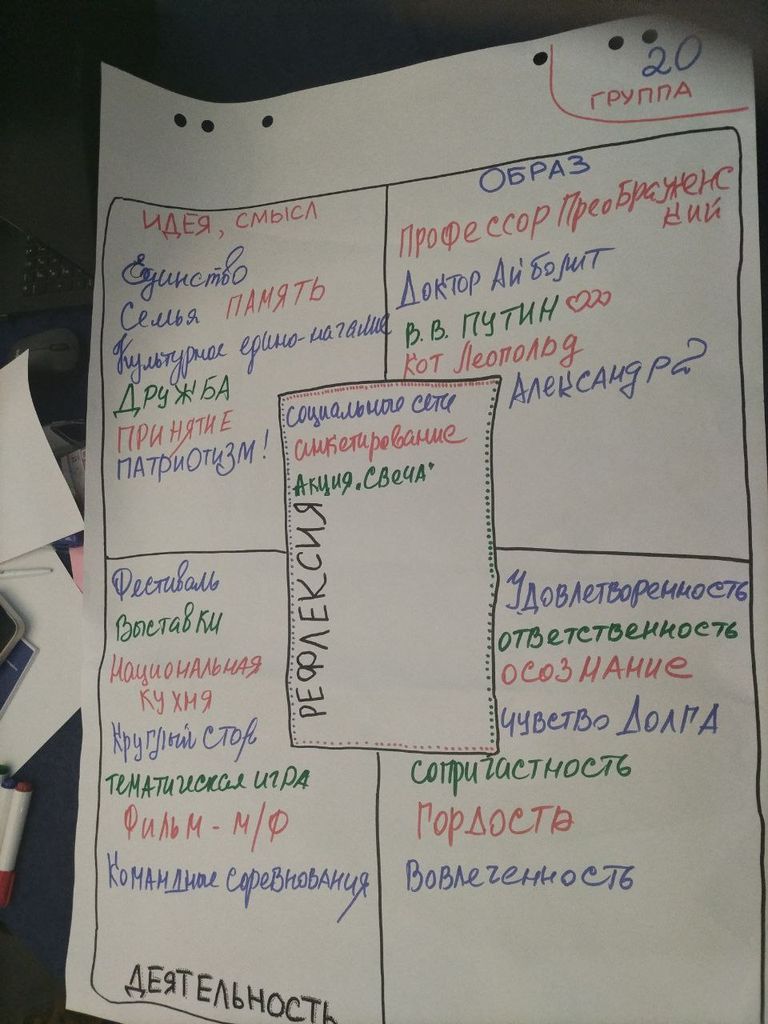 20
ГРУППА
ИДЕЯ, СМЫСЛ
Единство
Семья ПАМЯТЬ
Культурное едино-начание
ДРУЖБА
ПРИНЯТИЕ
ПАТРИОТИЗМ!
ОБРАЗ
ПРОФЕССОР ПреоБражЕНС
КИЙ
Доктор Айболит
В.В. ПУТИН
КОТ Леопольд
АЛЕКСАНДР 2
социальные сети
анкетирование
Акция „СВеча"
РЕФЛЕКСИЯ
Фестиваль
Выставки
Национальная
кухня
Круглый стол
тематическая игра
Фильм - м/ф
Командные соревнования
ДЕЯТЕЛЬНОСТЬ
Удовлетворенность
ответственность
осознание
чувство долга
сопричастность
Гордость
Вовлеченность